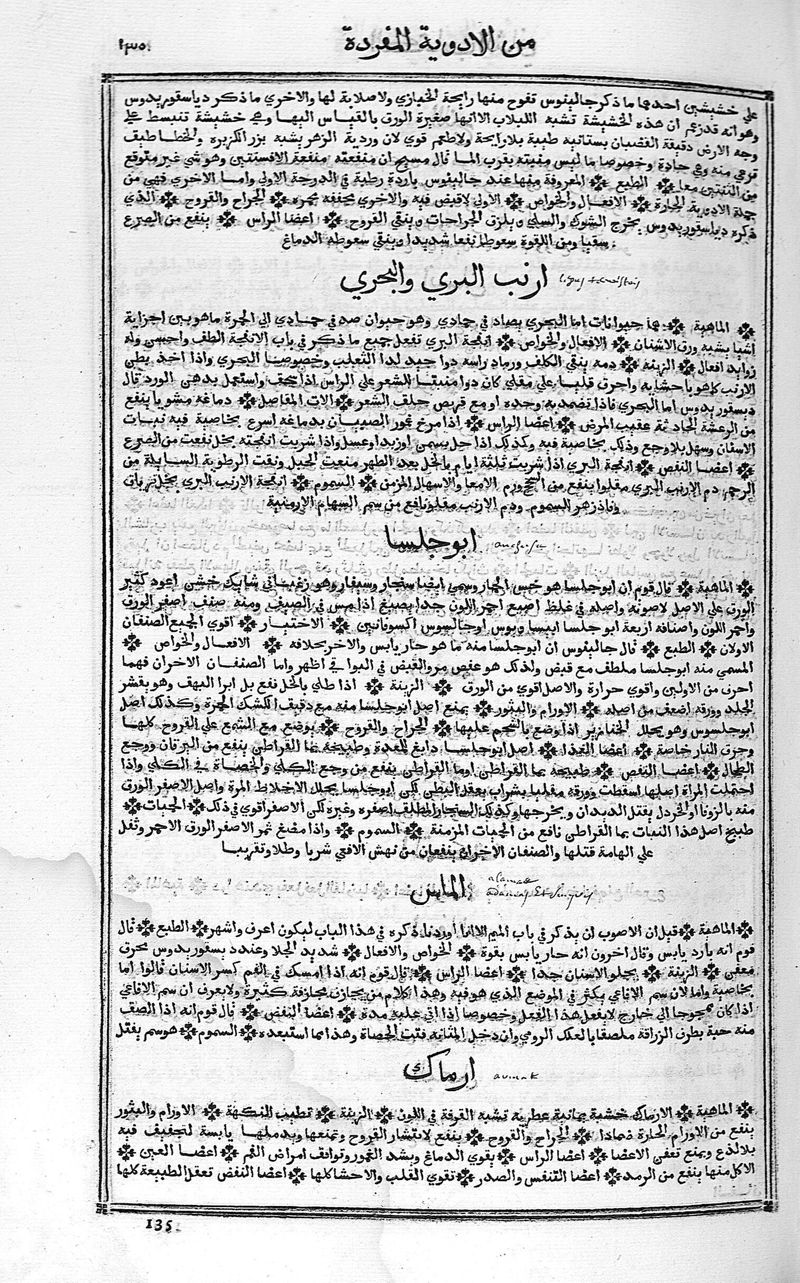 من الادوية المفردة
١٣٥
على خشيشتين احديهما ما ذكر جالينوس تفوح منها رايحة الخيازي ولا صلابة لها والاخري ما ذكر دياسقوريدوس
وهو انه قد زعم ان هذه الخشيشة تشبه اللبلاب الا انها صغيرة الورق بالقياس اليها وهي خشيشة تنبسط على
وجه الارض دقيقة القضبان بستانيه طيبة بلا رايحة ولا طعم قوي لان وردية الزهر يشبه بزر الكزبره
قرمي منه وفي حادة وخصوصا ما ليس منبته يقرب الما قال مسيح ان منفعته منفعة الافسنتين وهو شي غير متوقع
من النفتين معا ❈ الطبع ❈ المعروفة منها عند جالينوس باردة رطبة في الدرجة الاولي واما الاخري فهي من
جملة الادوية الحارة ❈ الافعال والخواص ❈ الاولي لا قبض فيه والاخري مجففه محمره ❈ الجراح والقروح ❈ الذي
ذكره دياسقوريدوس يخرج الشوك والسلي ويلزق الجراحات وينقي القروح ❈ اعضا الراس ❈ ينفع من الصرع
سقيا ومن اللقوة سعوطا نفعا شديدا وينقي سعوطه الدماغ
ارنب البري والبحري
lepus terrestris
الماهية ❈ هما حيوانات اما البحري يصاد في جمادي وهو حيوان صدفي جمادي الي الحمرة ما هو بين اجزايه
اشيا يشبه ورق الاشنان ❈ الافعال والخواص ❈ انفحة البري تفعل جميع ما ذكر في باب الانفحة الطف واحسن وله
زوايد افعال ❈ الزينة ❈ دمه ينقي الكلف ورماد راسه دوا جيد لدا الثعلب وخصوصيا البحري واذا اخذ بطن
الارنب كما هو باحشايه واحرق قليا على مقلي كان دوا منبتا للشعر على الراس اذا سحق واستعمل بدهن الورد قال
ديسقوريدوس اما البحري فاذا تضمد به وحده او مع قريص حلق الشعر ❈ الات المفاصل ❈ دماغه مشويا ينفع
من الرعشة الحادثة عقيب المرض ❈ اعضا الراس ❈ اذا مرخ عمور الصبيان بدماغه اسرع بخاصية فيه نبات
الاسنان وسهل بلا وجع وذلك بخاصية فيه وكذلك اذا حل بسمن او زبد او عسل واذا شربت انفحته بخل نفعت من الصرع
❈ اعضا النفض ❈ انفحة البري اذا شربت ثلثة ايام بالخل بعد الطهر منعت الحبل ونقت الرطوبة السايلة من
الرحم دم الارنب البري مقلوا ينفع من السحج وورم الامعا والاسهال المزمن ❈ السموم ❈ انفحة الارنب البري بخل ترياق
وباد زهر السموم ودم الارنب مقلو نافع من سم السهام الارمنية
ابوجلسا
anchusa
الماهية ❈ قال قوم ان ابوجلسا هو خس الحمار وسمي ايضا سنجار وسيفار وهو زغباني شايك خشن اعود كثير
الورق على الاصل لاصق به واصله في غلظ اصبع احمر اللون جدا يصبغ اذا مس في الصيف ومنه صنف اصغر الورق
واحمر اللون واصنافه اربعة ابوجلسا ❈ الاختيار ❈ اقوي الجميع الصنفان
الاولان ❈ الطبع ❈ قال جالينوس ان ابوجلسا منه ما هو حار يابس والاخر بخلافه ❈ الافعال والخواص ❈
المسمي منه ابوجلسا ملطف مع قبض ولذلك هو عفص مر والقبض في البوا في اظهر واما الصنفان الاخران فهما
احرف من الاولين واقوي حرارة والاصل اقوي من الورق ❈ الزينة ❈ اذا طلي بالخل نفع بل ابرا البهق وهو يقشر
الجلد وورقه اضعف من اصله ❈ الاورام والبثور ❈ يمنع اصل ابوجلسا منه مع دقيق الكشك الحمرة وكذلك اصل
ابوجلسوس وهو يحلل الخنازير اذا وضع بالشحم عليها ❈ الجراح والقروح ❈ يوضع مع الشمع على القروح كلها
وحرق النار خاصة ❈ اعضا الغذا ❈ اصل ابوجلسا دابغ للمعدة وطبيخه بما القراطن ينفع من اليرقان ووجع
الطحال ❈ اعضا النفض ❈ طبيخه بما القراطن او ما القراطن ينفع من وجع الكلي والحصاة في الكلي واذا
احتملت المراة اصلها اسقطت وورقه مغليا بشراب يعقل البطن لكن ابوجلسا يحلل الاخلاط المرة واصل الاصفر الورق
منه بالزوفا والخردل يقتل الديدان ويخرجها وكذلك السنجار المطلق اصفره وغيره لكن الاصفر اقوي في ذلك ❈ الحميات ❈
طبيخ اصل هذا النبات بما القراطن نافع من الحميات المزمنة ❈ السموم ❈ واذا مضغ ثمر الاصفر الورق الاحمر وتفل
على الهامة قتلها والصنفان الاخران ينفعان من نهش الافعي شربا وطلا وتقريبا
الماس
alamas
adamas
الماهية ❈ قيل ان الاصوب ان يذكر في باب الميم الا انا اوردنا ذكره في هذا الباب ليكون اعرف واشهر ❈ الطبع ❈ قال
قوم انه بارد يابس وقال اخرون انه حار يابس بقوة ❈ الخواص والافعال ❈ شديد الجلا وعند ديسقوريدوس محرق
معفن ❈ الزينة ❈ يجلو الاسنان جدا ❈ اعضا الراس ❈ قال قوم انه اذا امسك في الفم كسر الاسنان قالوا اما
بخاصية واما لان سم الافاعي يكثر في الموضع الذي هو فيه وهذا كلام من يجازف مجازفة كثيرة ولا يعرف ان سم الافاعي
اذا كان ممجوجا الي خارج لا يفعل هذا الفعل وخصوصا اذا اتي عليه مدة ❈ اعضا النفض ❈ قال قوم انه اذا الصق
منه حبة بطرف الزراقة ملصقا بالعلك الرومي وان دخل المثانه فتت الحصاة وهذا مما استبعده ❈ السموم ❈ هو سم يقتل
ارماك
armak
الماهية ❈ الارماك خشبة يمانية عطريه تشبه القرفة في اللون ❈ الزينة ❈ تطيب النكهة ❈ الاورام والبثور
ينفع من الاورام الحارة ضمادا ❈ الجراح والقروح ❈ ينفع لانتشار القروح ويمنعها ويدملها يابسة لتجفيف فيه
بلا لذع ويمنع تعفن الاعضا ❈ اعضا الراس ❈ يقوي الدماغ ويشد العمور وتوافق امراض الفم ❈ اعضا العين ❈
الاكل منها ينفع من الرمد ❈ اعضا التنفس والصدر ❈ تقوي القلب والاحشا كلها ❈ اعضا النفض تعقل الطبيعة كلها
135